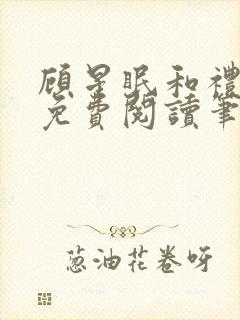 顧星眠和禮
免費閱讀筆
葱油花卷呀